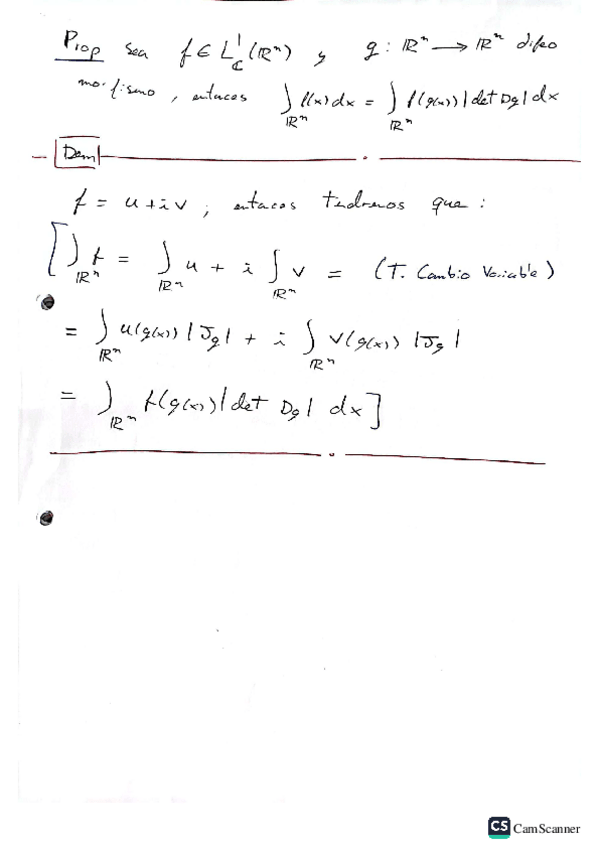 Prop Sea f ∈ L¹_ℂ(ℝⁿ) y g: ℝⁿ → ℝⁿ difeo
morfismo, entonces ∫_ℝⁿ f(x) dx = ∫_ℝⁿ f(g(x)) |det Dg| dx
Dem
f = u + i v ; entonces tendremos que :
[ ∫_ℝⁿ f = ∫_ℝⁿ u + i ∫_ℝⁿ v = (T. Cambio Variable)
= ∫_ℝⁿ u(g(x)) |Jg| + i ∫_ℝⁿ v(g(x)) |Jg|
= ∫_ℝⁿ f(g(x)) |det Dg| dx ]
CS CamScanner